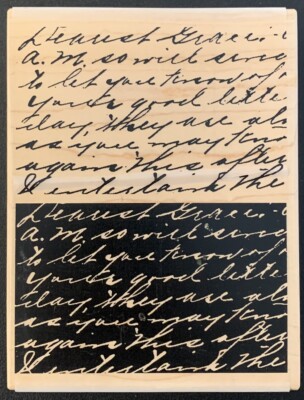 Dearest Grace:-
A.M. so will send
to let you know of
yours good lette
day, they use al
as you may kno
again this after
I entertain the
Dearest Grace:-
A.M. so will send
to let you know of
yours good lette
day, they use al
as you may kno
again this after
entertain the